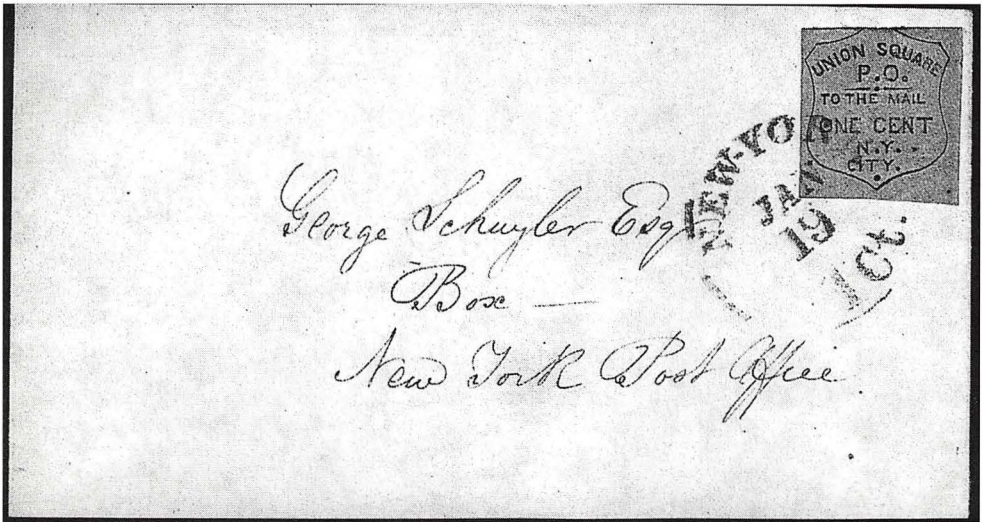 UNION SQUARE
P.O.
TO THE MAIL
ONE CENT
N.Y.
CITY.
NEW-YOR
JAN
19
1 Ct.
George Schuyler Esq
Box —
New York Post Office